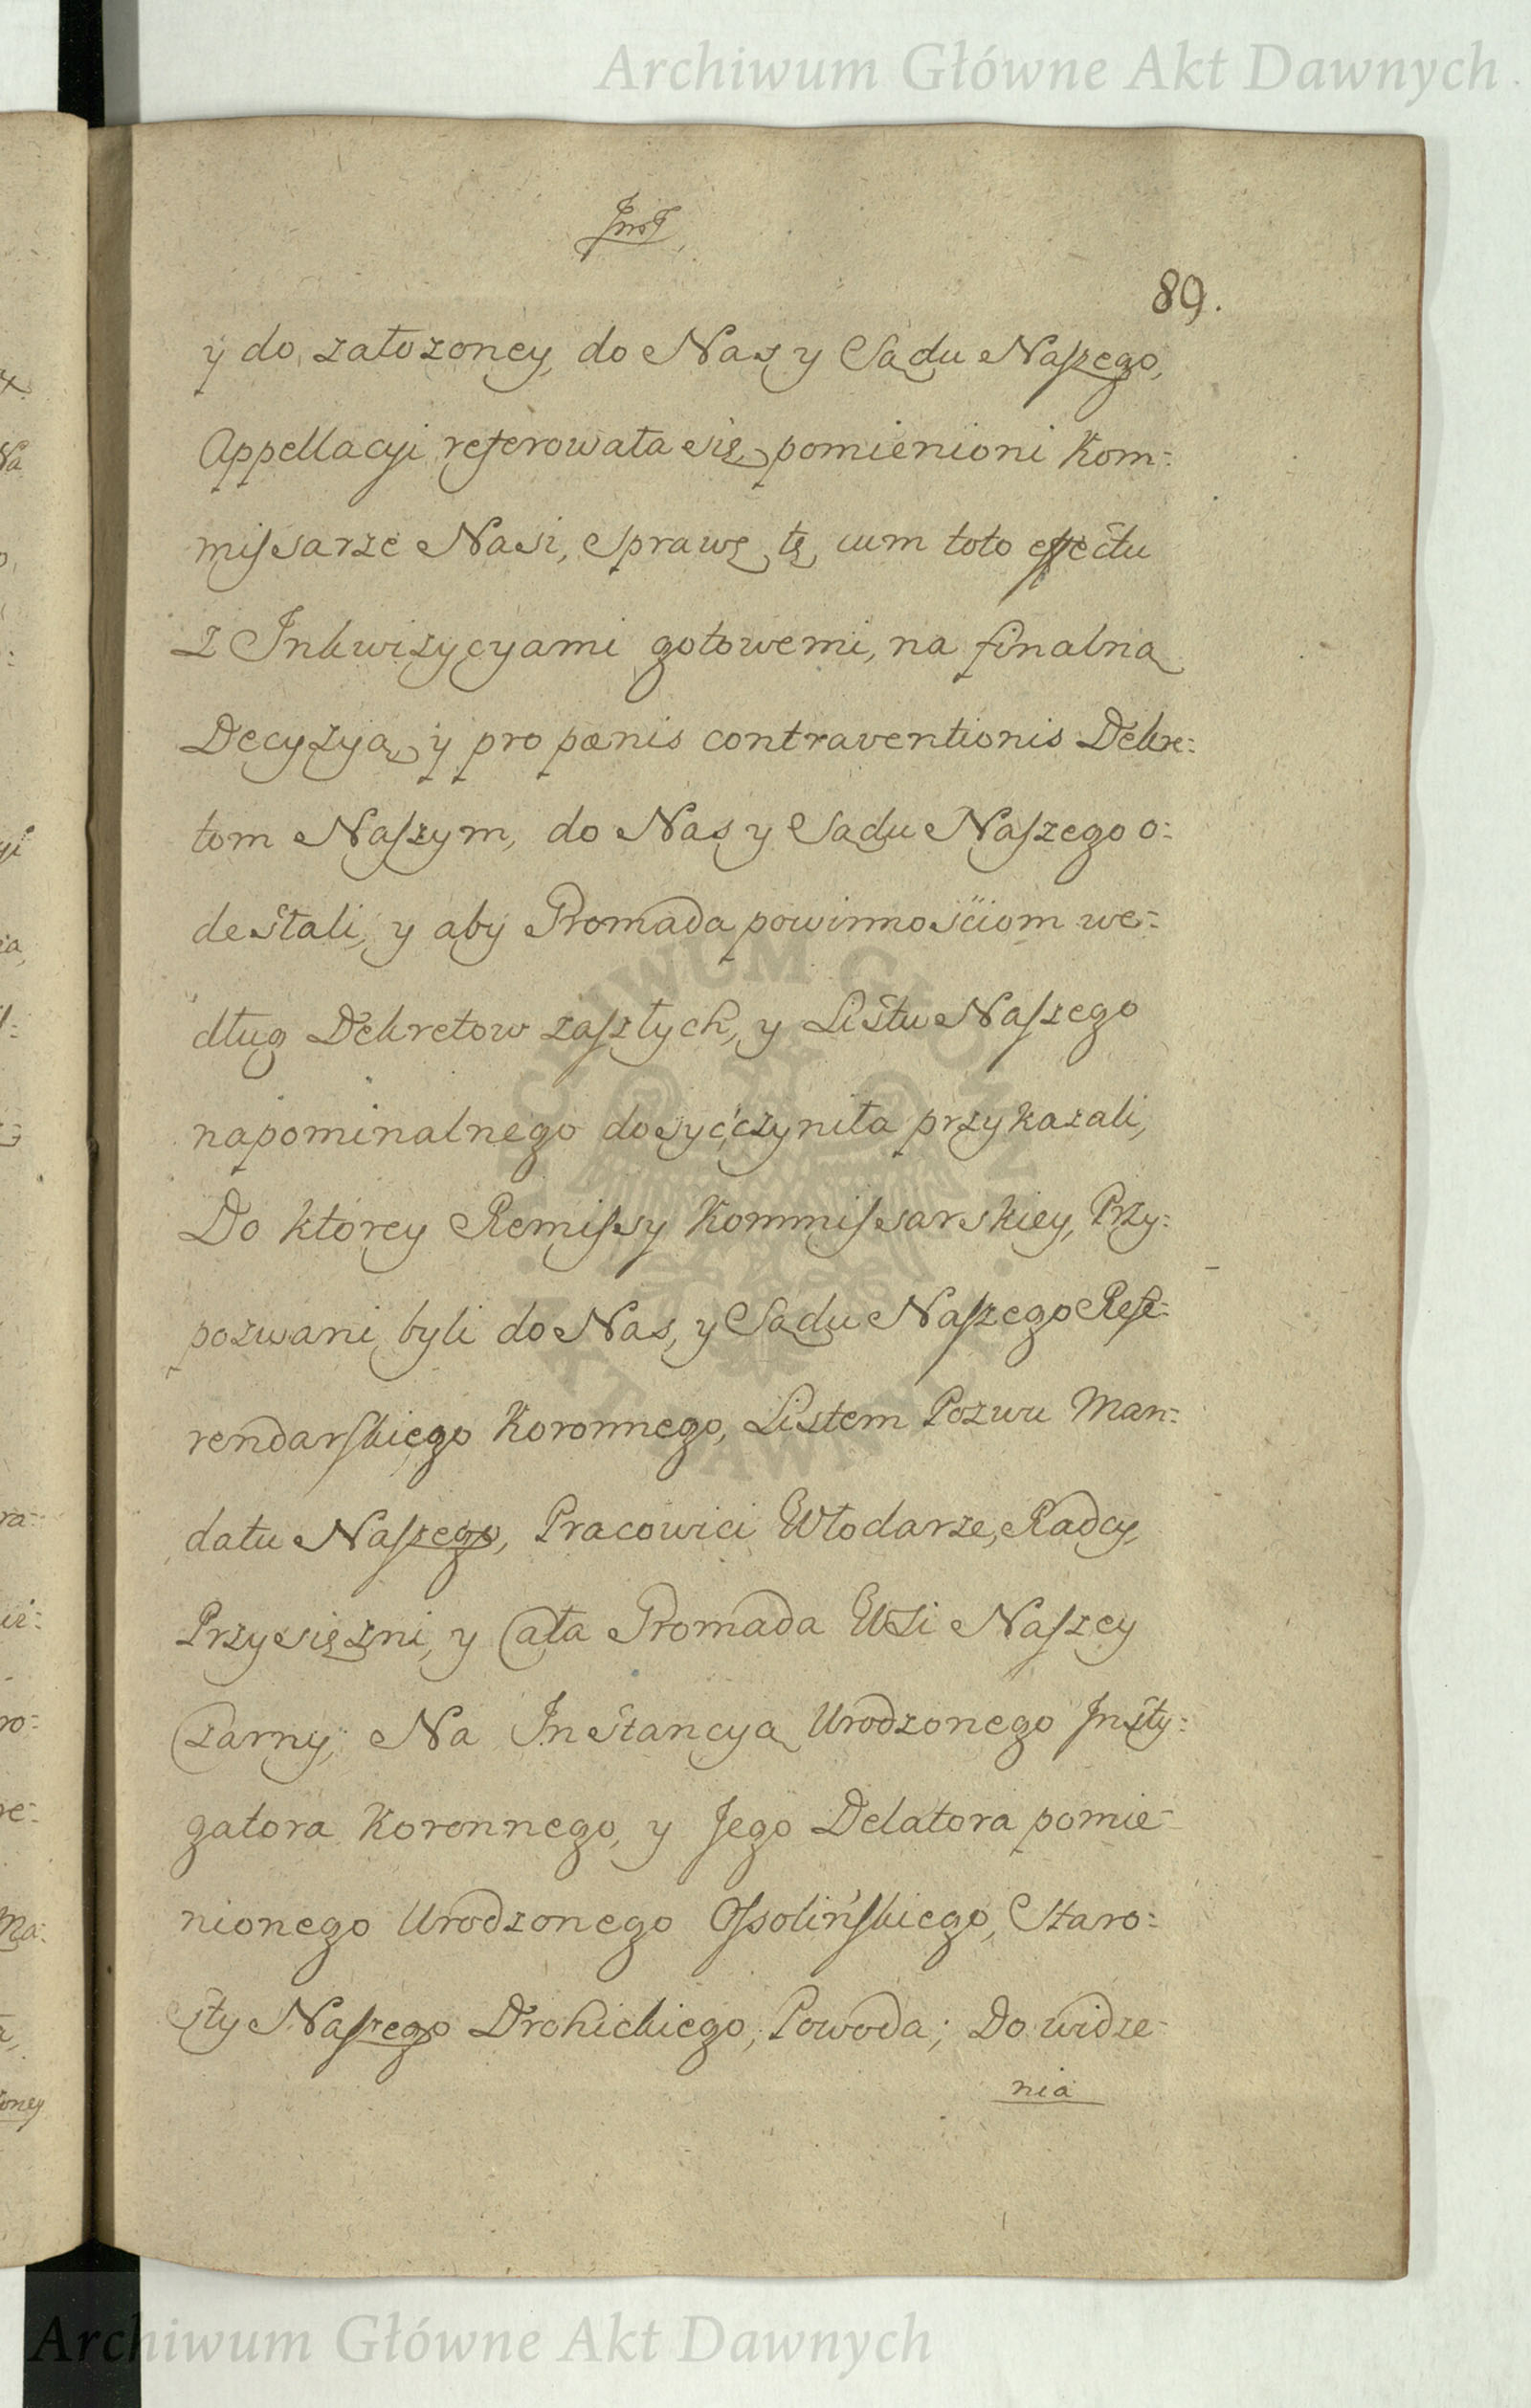 Archiwum Główne Akt Dawnych
89.
y do założoney, do Nas y Sądu Naszego,
Appellacyi referowała się, pomienioni Kom=
missarze Nasi, Sprawę tę, cum toto effectu
z Inkwizycyami gotowemi, na finalną
Decyzyą, y pro pœnis contraventionis Dekre=
tom Naszym, do Nas y Sądu Naszego o=
desłali, y aby Gromada powinnościom we=
dług Dekretow zaszłych, y Listu Naszego
napominalnego dosyć czyniła przykazali,
Do ktorey Remissy Kommissarskiey, Przy=
pozwani byli do Nas, y Sądu Naszego Refe=
rendarskiego Koronnego, Listem Pozwu Man=
datu Naszego, Pracowici Włodarze, Radcy,
Przysiężni, y Cała Gromada Wsi Naszey
Czarny; Na Instancyą Urodzonego Insty=
gatora Koronnego, y Jego Delatora pomie=
nionego Urodzonego Ossolińskiego, Staro=
sty Naszego Drohickiego, Powoda; Do widze=
nia
Archiwum Główne Akt Dawnych